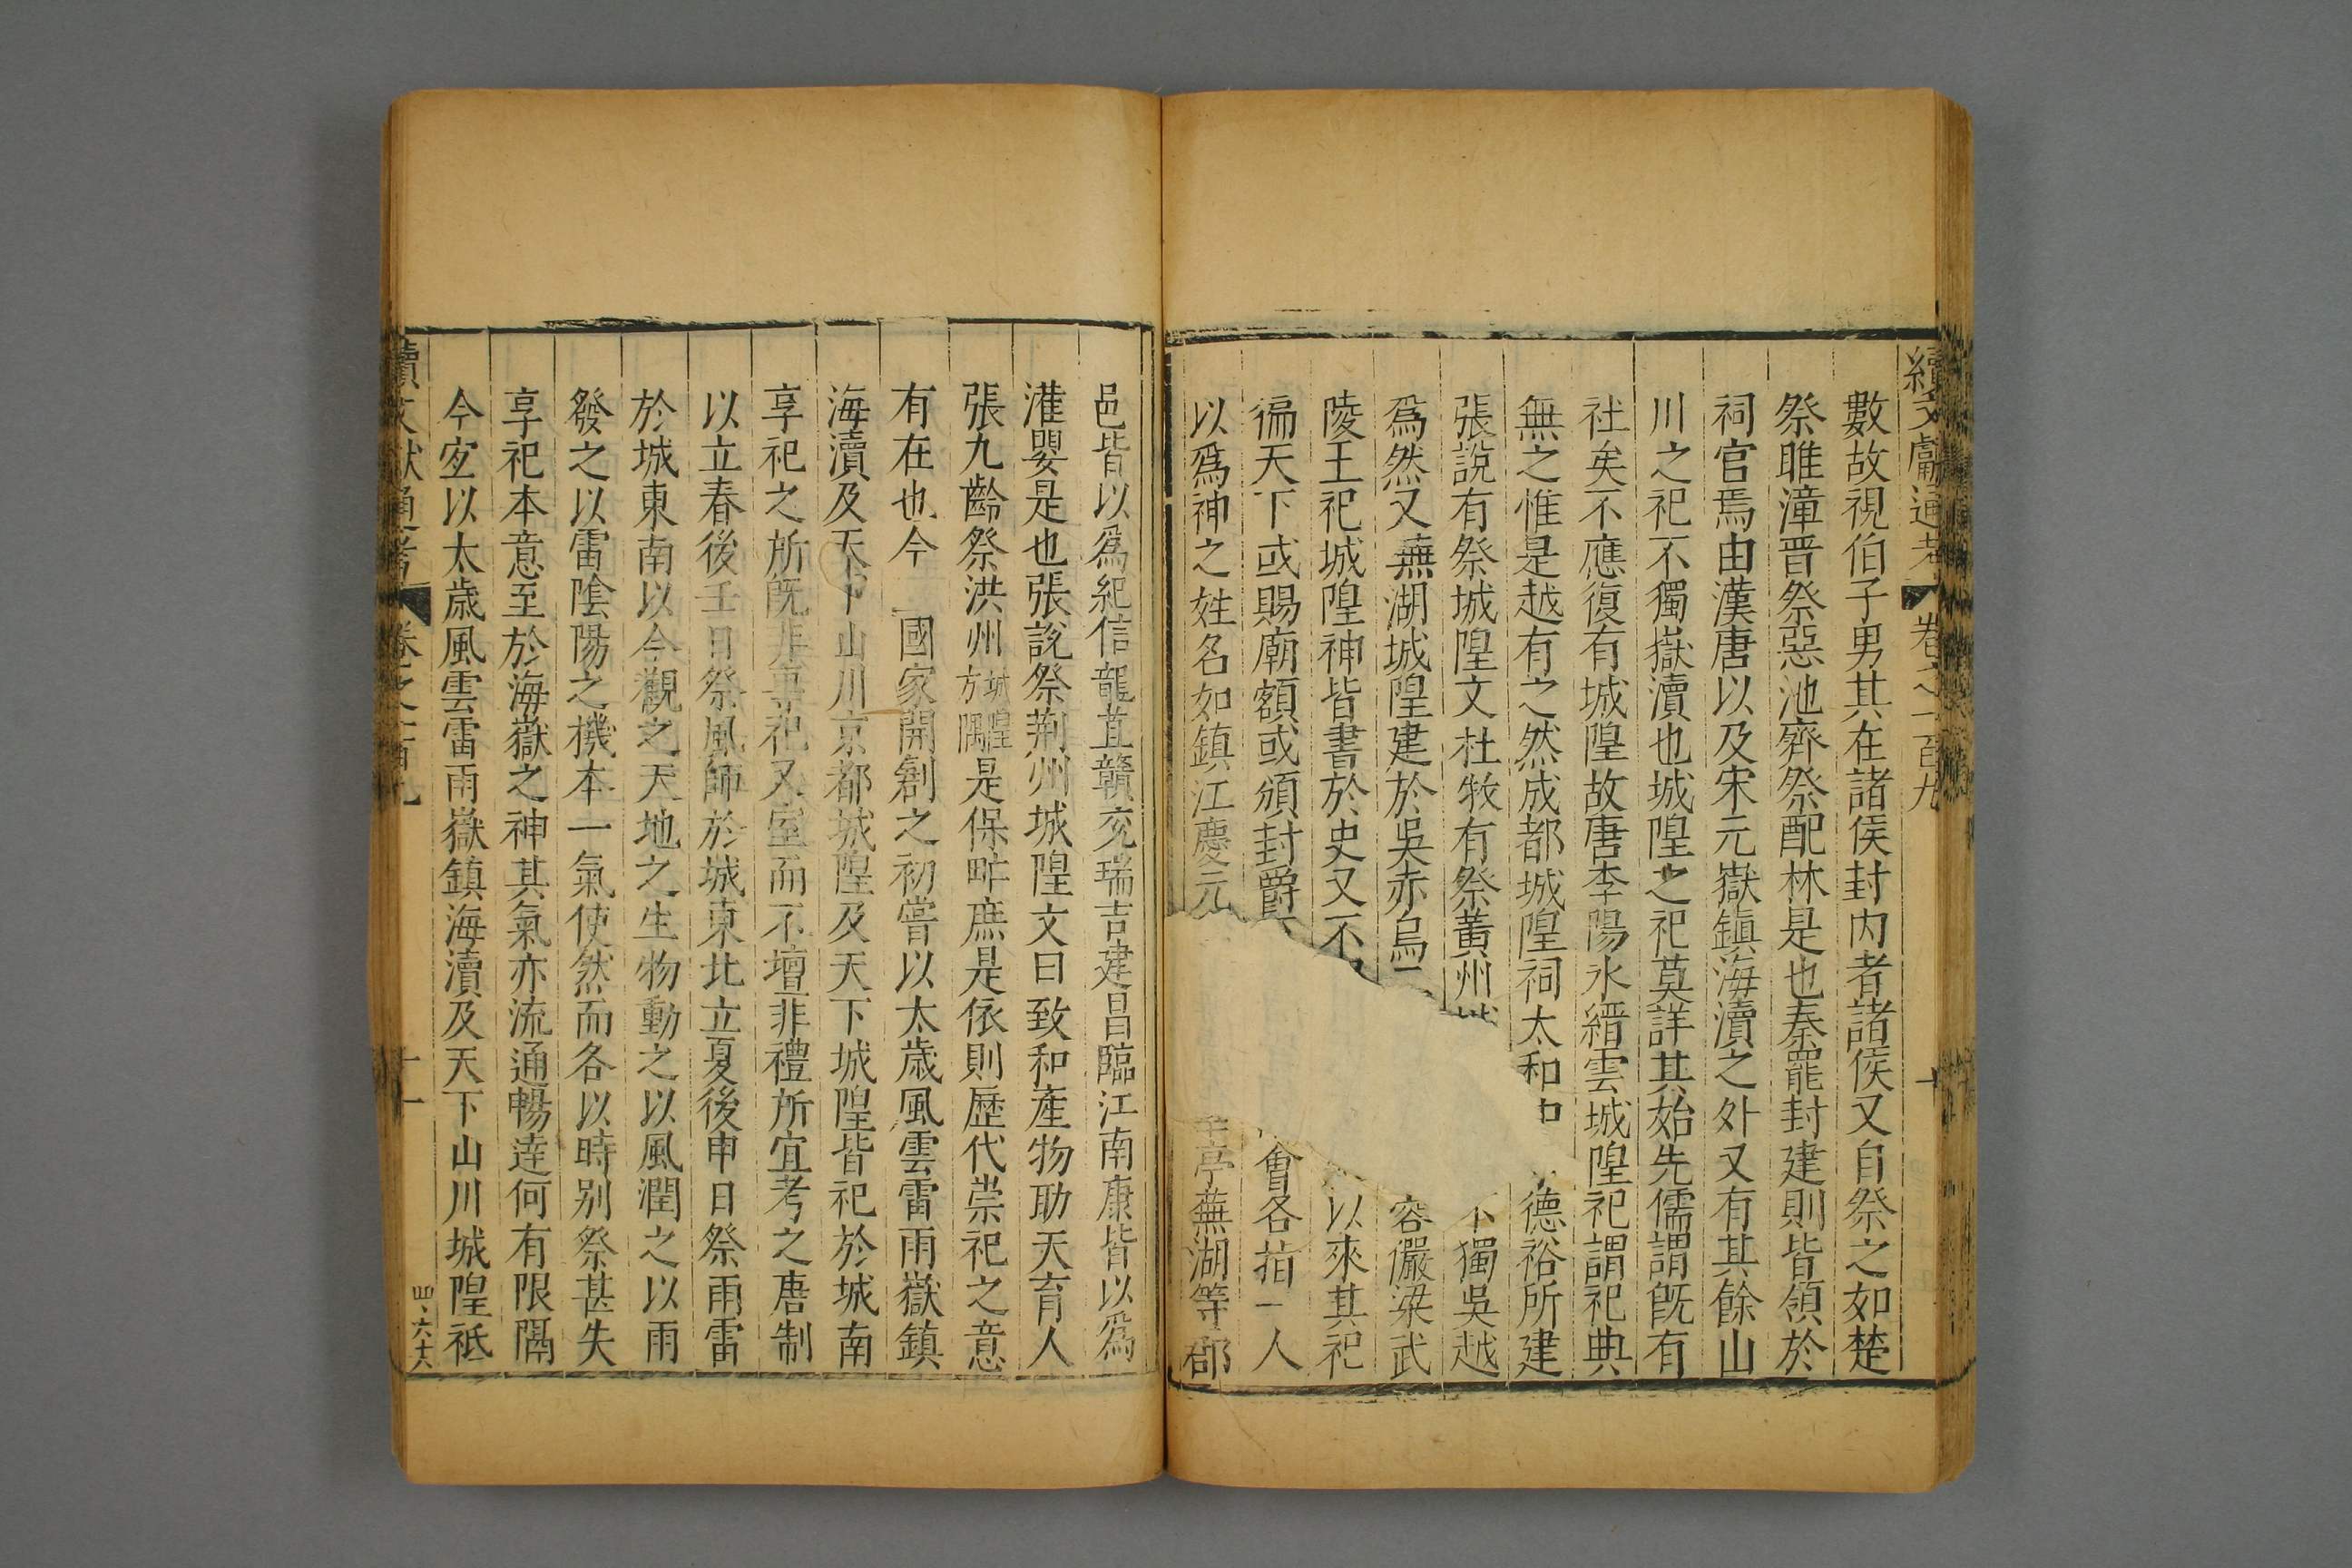 續文獻通考 卷之一百九 十
數故視伯子男其在諸侯封内者諸侯又自祭之如楚
祭雎漳晋祭惡池齊祭配林是也秦罷封建則皆領於
祠官焉由漢唐以及宋元嶽鎮海瀆之外又有其餘山
川之祀不獨嶽瀆也城隍之祀莫詳其始先儒謂旣有
社矣不應復有城隍故唐李陽氷縉雲城隍祀謂祀典
無之惟是越有之然成都城隍祠太和中 德裕所建
張說有祭城隍文杜牧有祭黃州城 不獨吳越
爲然又蕪湖城隍建於吳赤烏 容儼梁武
陵王祀城隍神皆書於史又不 以來其祀
徧天下或賜廟額或頒封爵 會各指一人
以爲神之姓名如鎮江慶元 亭蕪湖等郡
邑皆以爲紀信龍且贛兖瑞吉建昌臨江南康皆以爲
灌嬰是也張說祭荆州城隍文曰致和產物助天育人
張九齡祭洪州城隍方隅是保甿庶是依則歷代崇祀之意
有在也今 國家開創之初嘗以太歲風雲雷雨嶽鎮
海瀆及天下山川京都城隍及天下城隍皆祀於城南
享祀之所旣非專祀又室而不壇非禮所宜考之唐制
以立春後壬日祭風師於城東北立夏後申日祭雨雷
於城東南以今觀之天地之生物動之以風潤之以雨
發之以雷陰陽之機本一氣使然而各以時别祭甚失
享祀本意至於海嶽之神其氣亦流通暢達何有限隔
今宐以太歲風雲雷雨嶽鎮海瀆及天下山川城隍祗
續文獻通考 卷之一百九 十一 四、六十六